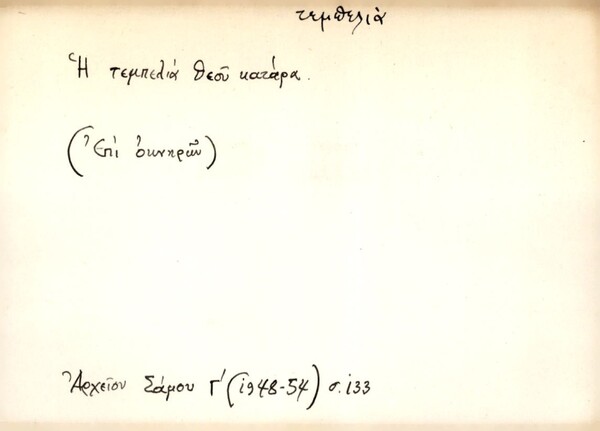 τεμπελιὰ
Ἡ τεμπελιά Θεοῦ κατάρα.
(Ἐπί ὀκνηρῶν)
Ἀρχεῖον Σάμου Γ' (1948-54) σ. 133